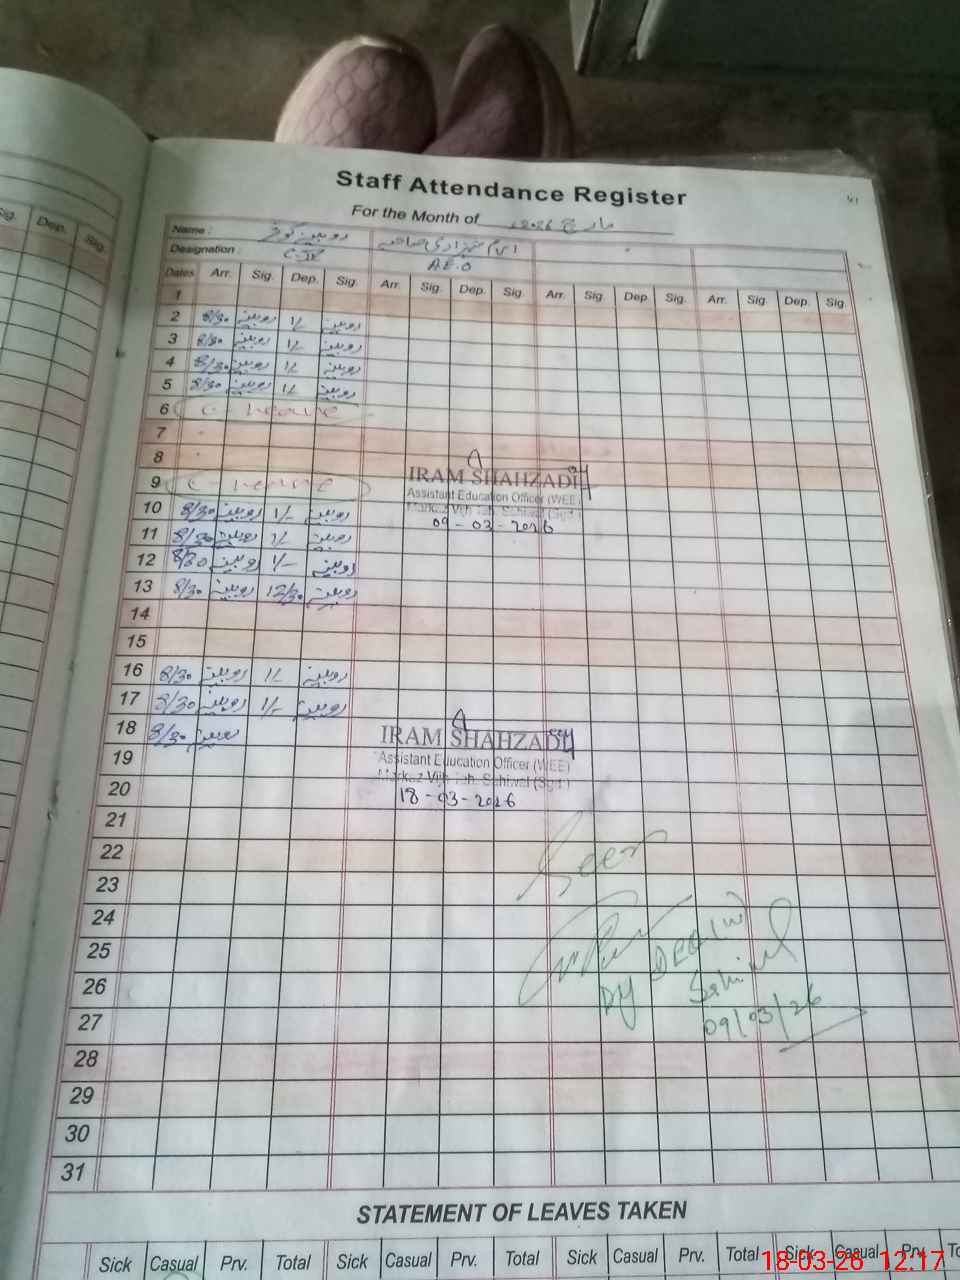 Sig. Dep. Sig.
Staff Attendance Register
For the Month of مارچ 2026
Name : روبینہ کوثر ارم شہزادی صاحبہ
Designation : A.E.O
Dates Arr. Sig. Dep. Sig. Arr. Sig. Dep. Sig. Arr. Sig. Dep Sig. Arr. Sig. Dep. Sig.
1
2 8/30 روبینہ 1/ روبینہ
3 8/30 روبینہ 1/ روبینہ
4 8/30 روبینہ 1/ روبینہ
5 8/30 روبینہ 1/ روبینہ
6 C-heave
7
8
IRAM SHAHZADI
9 C-heave
Assistant Education Officer (WEE)
Markaz Vijh Teh. Sahiwal (Sgd.)
10 8/30 روبینہ 1/- روبینہ
09-03-2026
11 8/30 روبینہ 1/ روبینہ
12 8/30 روبینہ 1/- روبینہ
13 8/30 روبینہ 12/30 روبینہ
14
15
16 8/30 روبینہ 1/ روبینہ
17 8/30 روبینہ 1/- روبینہ
18 8/30 روبینہ
IRAM SHAHZADI
19
Assistant Education Officer (WEE)
Markaz Vijh Teh. Sahiwal (Sgd.)
20
18-03-2026
21
22
Seen
23
24
25
Dy DEO (W)
26
Sahiwal
27
09/03/26
28
29
30
31
STATEMENT OF LEAVES TAKEN
Sick Casual Prv. Total Sick Casual Prv. Total Sick Casual Prv. Total Sick Casual Prv.
18-03-26 12:17